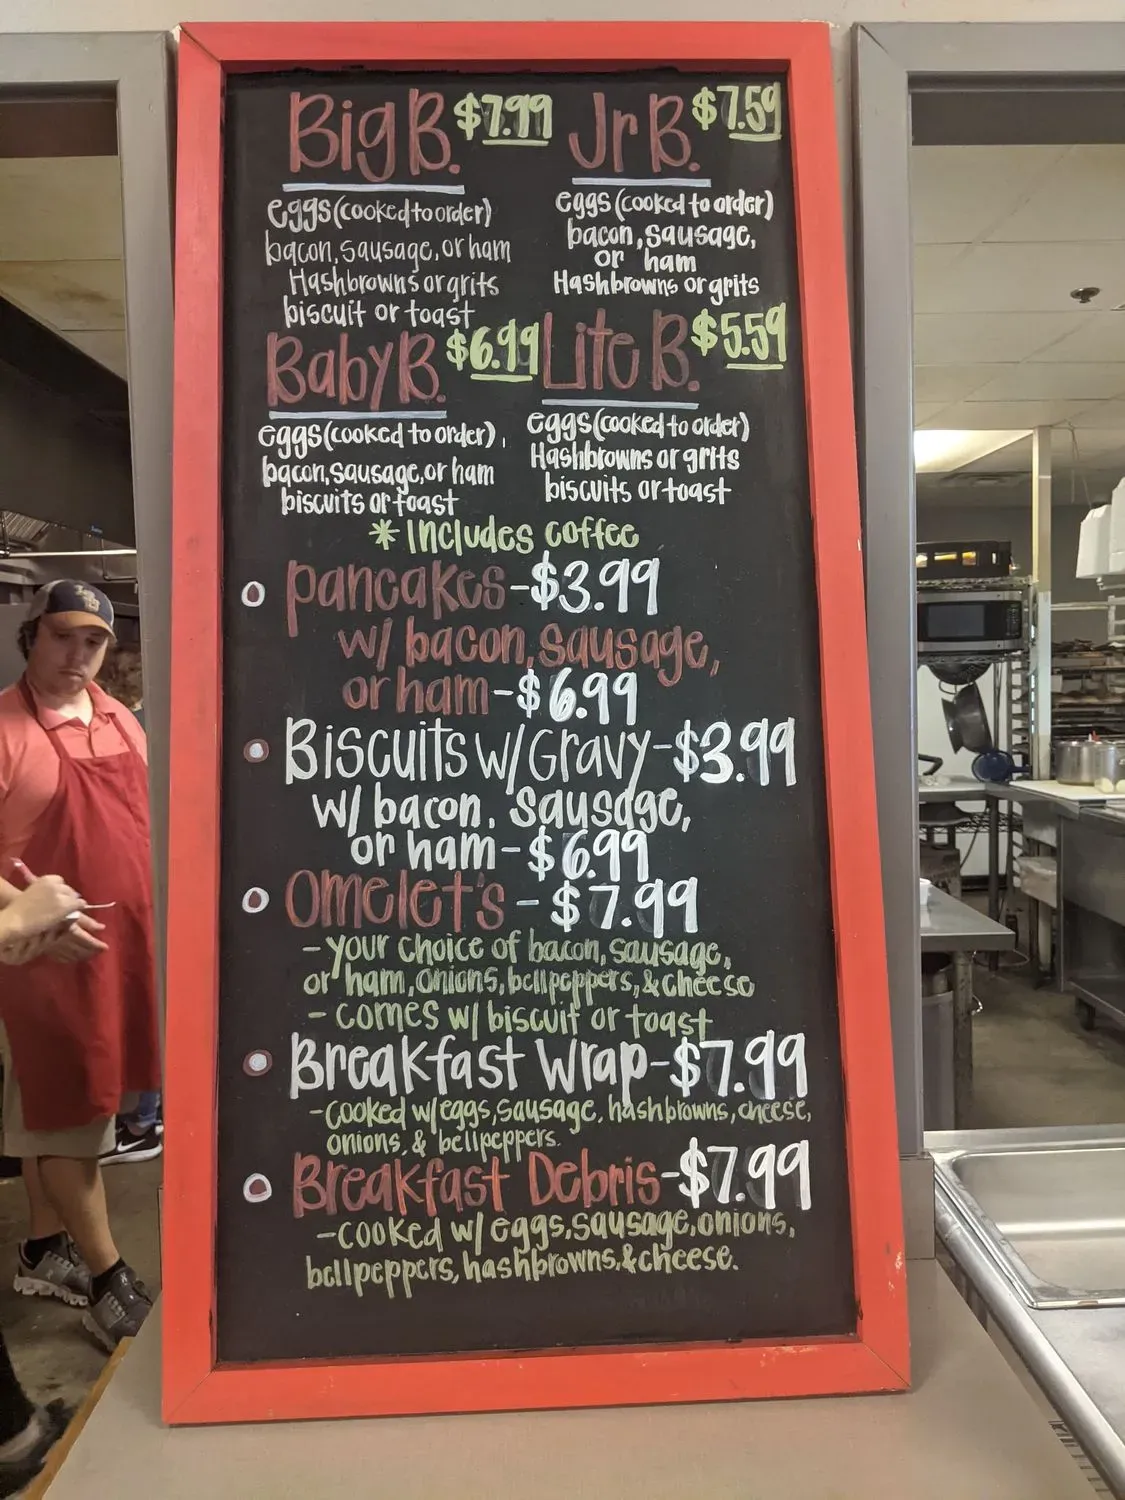 Big B. $7.99
eggs (cooked to order)
bacon, sausage, or ham
Hashbrowns or grits
biscuit or toast
Jr B. $7.59
eggs (cooked to order)
bacon, sausage,
or ham
Hashbrowns or grits
Baby B. $6.99
eggs (cooked to order),
bacon, sausage, or ham
biscuits or toast
Lite B. $5.59
eggs (cooked to order)
Hashbrowns or grits
biscuits or toast
* Includes coffee
pancakes - $3.99
w/ bacon, sausage,
or ham - $6.99
Biscuits w/ Gravy - $3.99
w/ bacon, sausage,
or ham - $6.99
Omelet's - $7.99
- your choice of bacon, sausage,
or ham, onions, bellpeppers, & cheese
- comes w/ biscuit or toast
Breakfast Wrap - $7.99
- cooked w/ eggs, sausage, hashbrowns, cheese,
onions, & bellpeppers.
Breakfast Debris - $7.99
- cooked w/ eggs, sausage, onions,
bellpeppers, hashbrowns, & cheese.